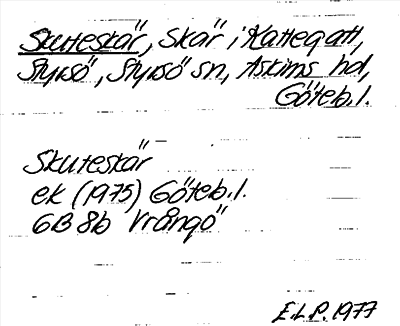 Skuteskär, Skär i Kattegatt,
Styrsö, Styrsö sn, Askims hd,
Göteb. l.
Skuteskär
ek (1975) Göteb. l.
6B 8b Vrångö
E.L.P. 1977